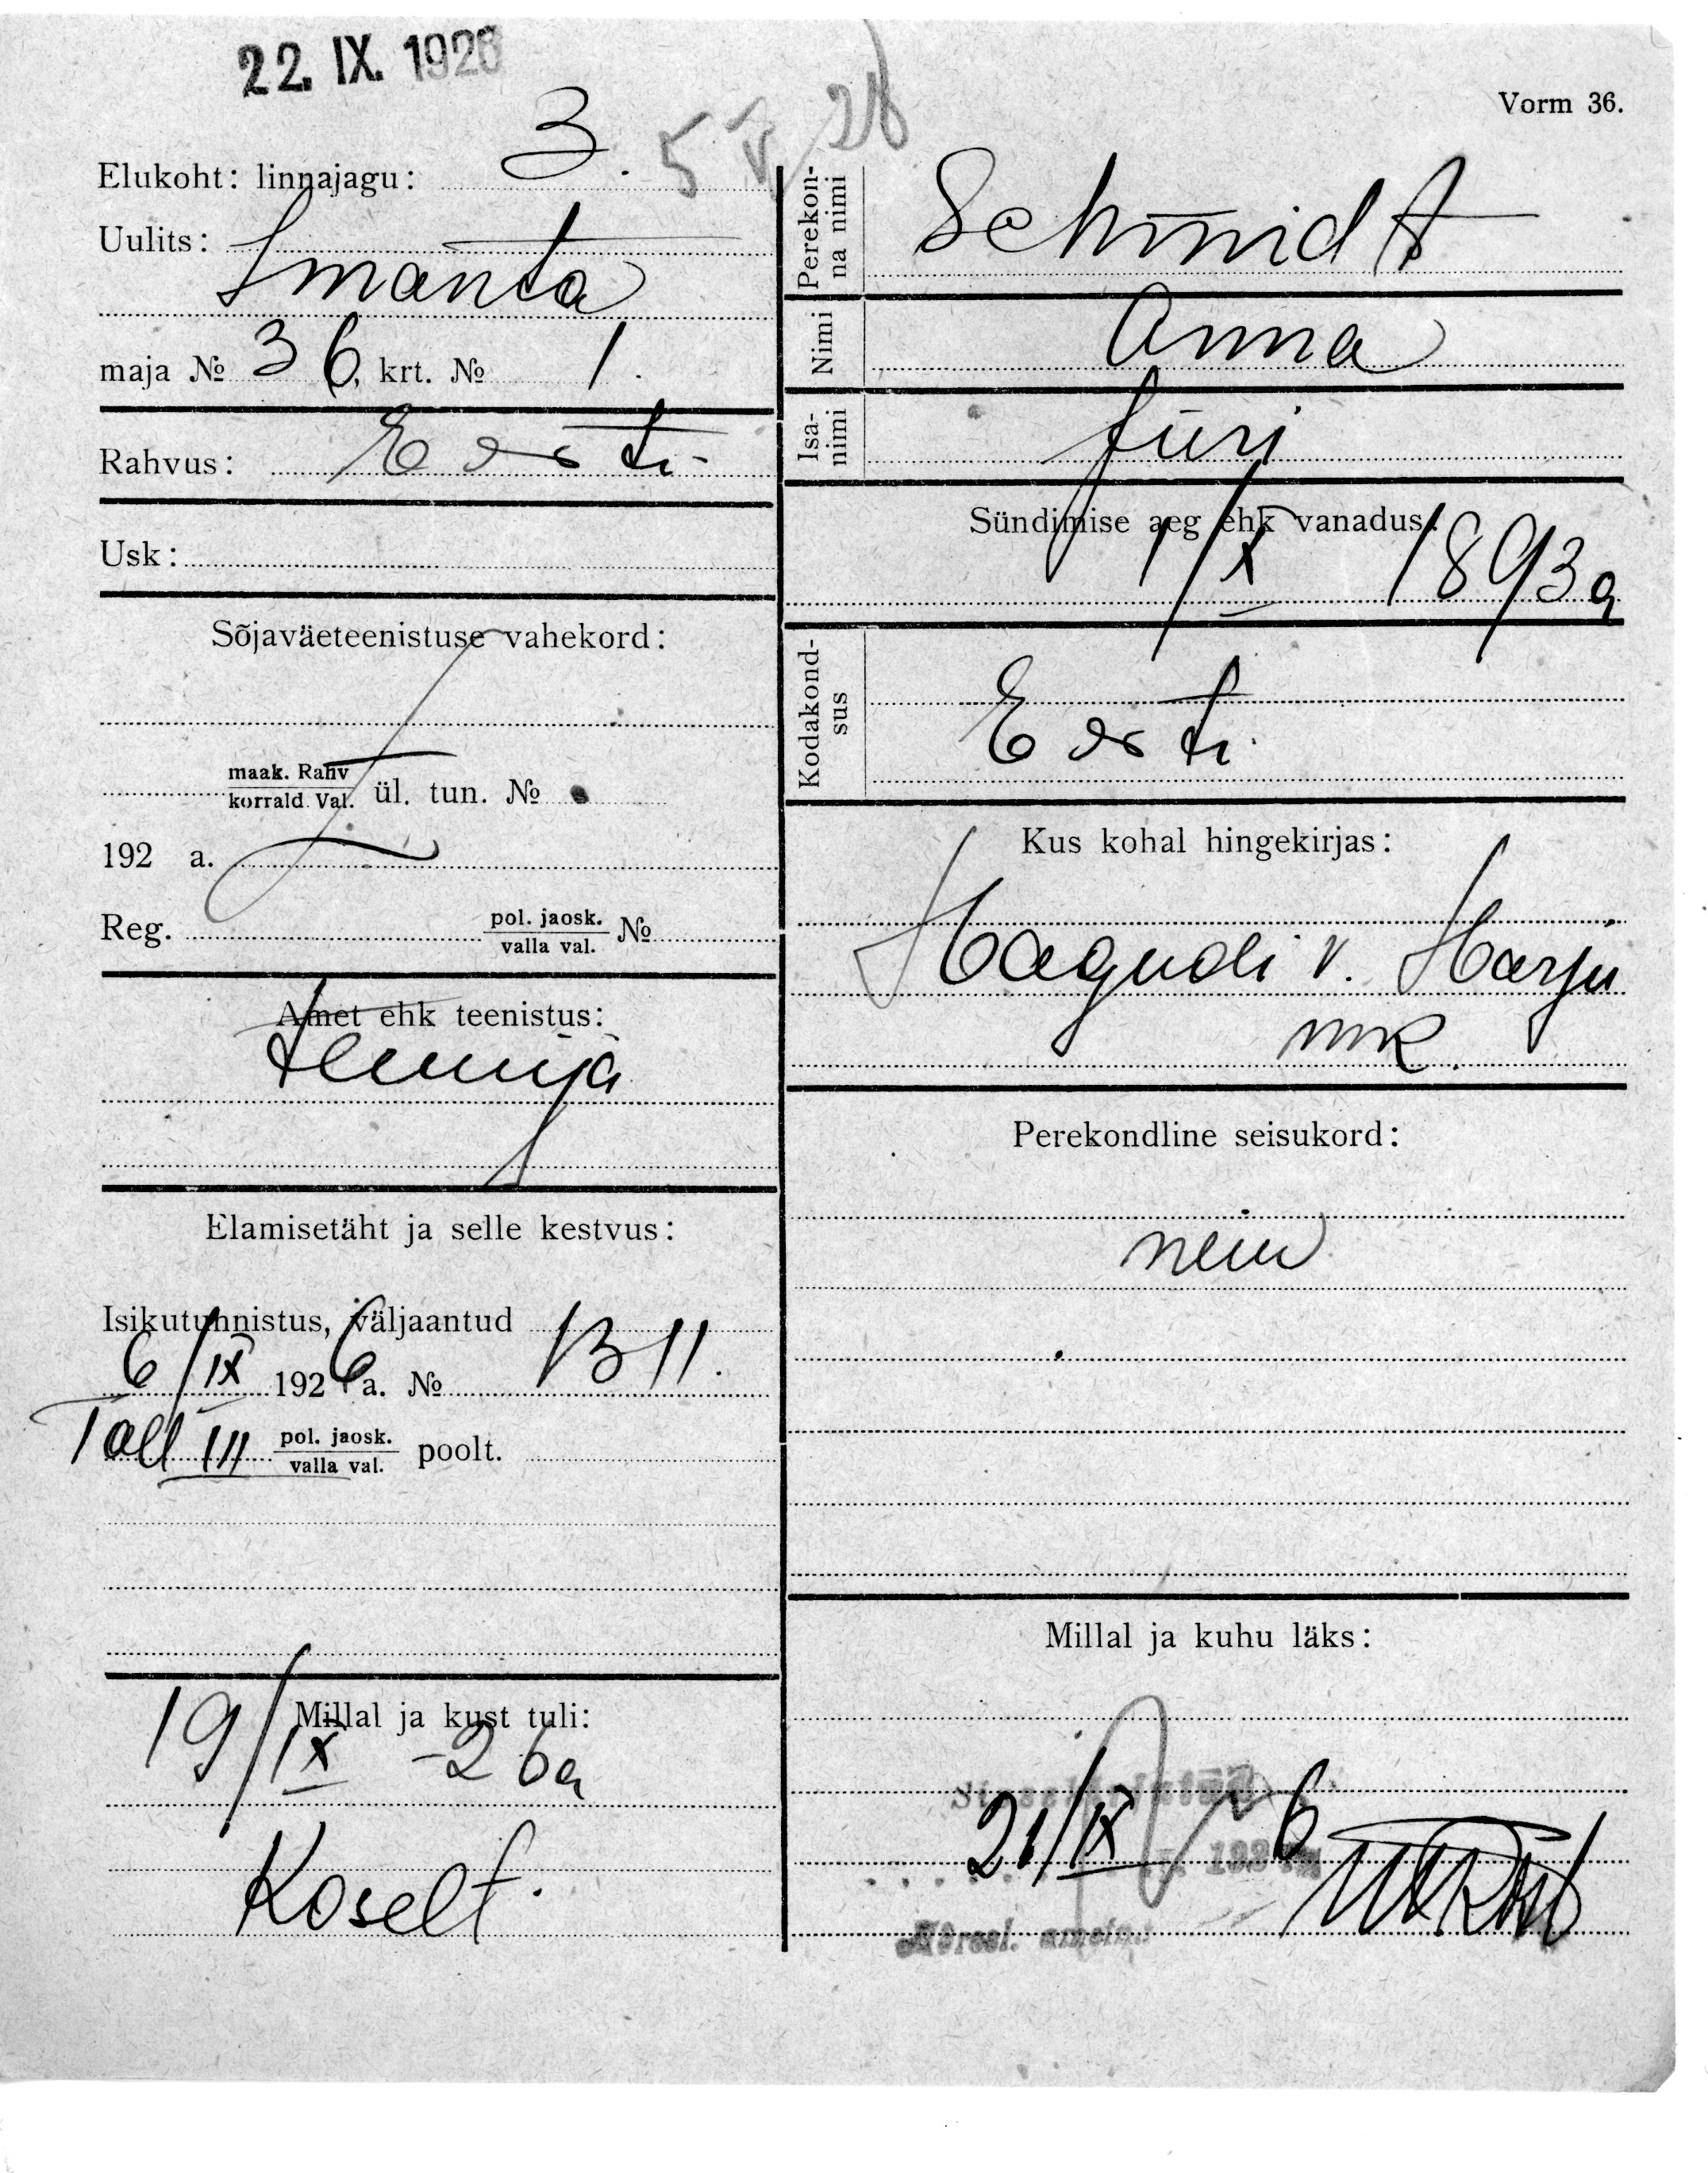 22. IX. 1926
5 V 28
Vorm 36.
Elukoht: linnajagu: 3.
Uulits: Imanta
maja № 36, krt. № 1.
Rahvus: Eesti
Usk:
Sõjaväeteenistuse vahekord:
maak. Rahv
korrald. Val. ül. tun. №
192 a.
Reg. pol. jaosk.
valla val. №
Amet ehk teenistus:
teenija
Elamisetäht ja selle kestvus:
Isikutunnistus, väljaantud
6/IX 1926 a. № 1311.
Tall III pol. jaosk.
valla val. poolt.
Millal ja kust tuli:
19/IX -26a
Koselt.
Perekon-
na nimi Schmidt
Nimi Anna
Isa-
nimi Jüri
Sündimise aeg ehk vanadus:
1/X 1893a
Kodakond-
sus Eesti
Kus kohal hingekirjas:
Hagudi v. Harju
mk.
Perekondline seisukord:
neiu
Millal ja kuhu läks:
21/IX 6